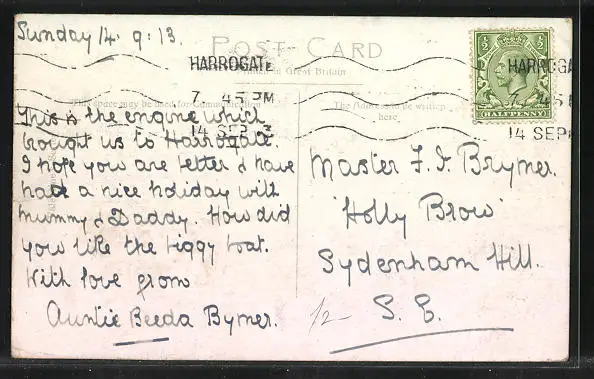 Sunday 14.9.13.
POST CARD
Printed in Great Britain
HARROGATE
7 45 PM
14 SEP 13
HARROGA
7 45 P
14 SEP
½ ½
HALFPENNY
This space may be used for Communication
The Address to be written
here
This is the engine which
brought us to Harrogate.
I hope you are better & have
had a nice holiday with
Mummy & Daddy. How did
you like the piggy boat.
With love from
Auntie Beeda Bymer.
Master F. J. Brymer.
'Holly Brow'
Sydenham Hill.
S. E.
1/2-